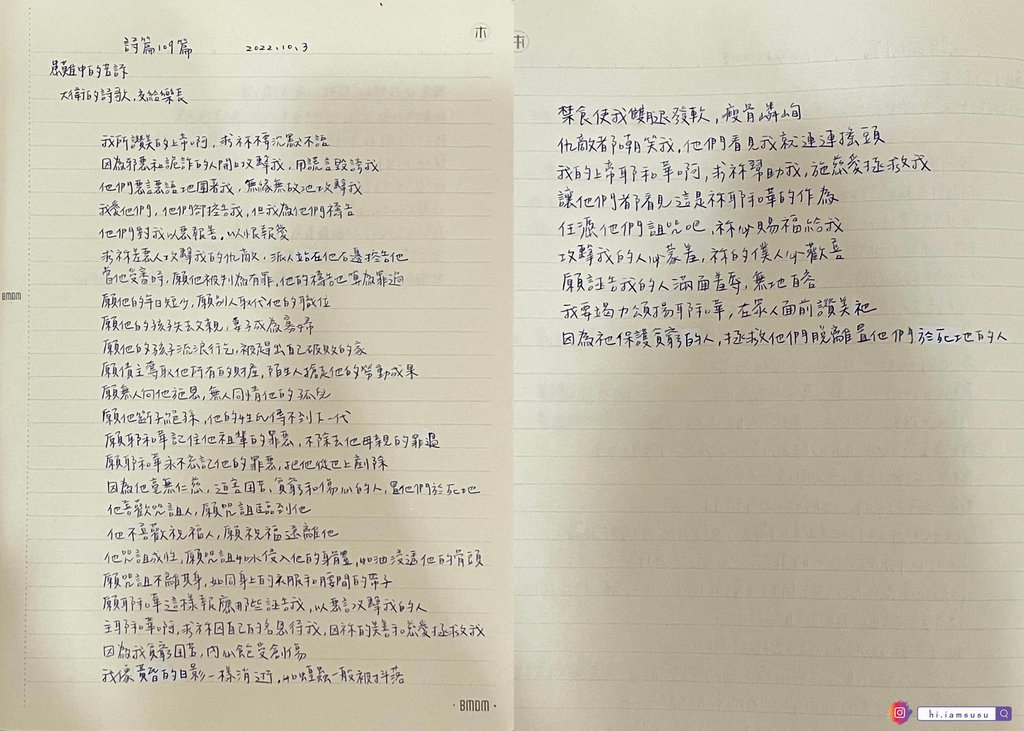 木
詩篇109篇 2022.10.3
患難中的苦訴
大衛的詩歌，交給樂長
我所讚美的上帝啊，求祢不要沉默不語
因為邪惡和詭詐的人開口攻擊我，用謊言毀謗我
他們惡言惡語地圍著我，無緣無故地攻擊我
我愛他們，他們卻控告我，但我為他們禱告
他們對我以惡報善，以恨報愛
求祢差惡人攻擊我的仇敵，派人站在他右邊控告他
當他受審時，願他被判為有罪，他的禱告也算為罪過
願他的年日短少，願別人取代他的職位
願他的孩子失去父親，妻子成為寡婦
願他的孩子流浪行乞，被趕出自己破敗的家
願債主奪取他所有的財產，陌生人搶走他的勞動成果
願無人向他施恩，無人同情他的孤兒
願他斷子絕孫，他的姓氏傳不到下一代
願耶和華記住他祖輩的罪惡，不除去他母親的罪過
願耶和華永不忘記他的罪惡，把他從世上剷除
因為他毫無仁慈，迫害困苦、貧窮和傷心的人，置他們於死地
他喜歡咒詛人，願咒詛臨到他
他不喜歡祝福人，願祝福遠離他
他咒詛成性，願咒詛如水侵入他的身體，如油浸透他的骨頭
願咒詛不離其身，如同身上的衣服和腰間的帶子
願耶和華這樣報應那些誣告我，以惡言攻擊我的人
主耶和華啊，求祢因自己的名恩待我，因祢的美善和慈愛拯救我
因為我貧窮困苦，內心飽受創傷
我像黃昏的日影一樣消逝，如蝗蟲一般被抖落
BMDM
· BMDM ·
木
禁食使我雙腿發軟，瘦骨嶙峋
仇敵都嘲笑我，他們看見我就連連搖頭
我的上帝耶和華啊，求祢幫助我，施慈愛拯救我
讓他們都看見這是祢耶和華的作為
任憑他們詛咒吧，祢必賜福給我
攻擊我的人必蒙羞，祢的僕人必歡喜
願誣告我的人滿面羞辱，無地自容
我要竭力頌揚耶和華，在眾人面前讚美祂
因為祂保護貧窮的人，拯救他們脫離置他們於死地的人
hi.iamsusu